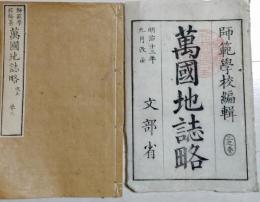 師範學校編輯
萬國地誌略
明治十三年
九月改正
文部省
師範學
萬國地誌略